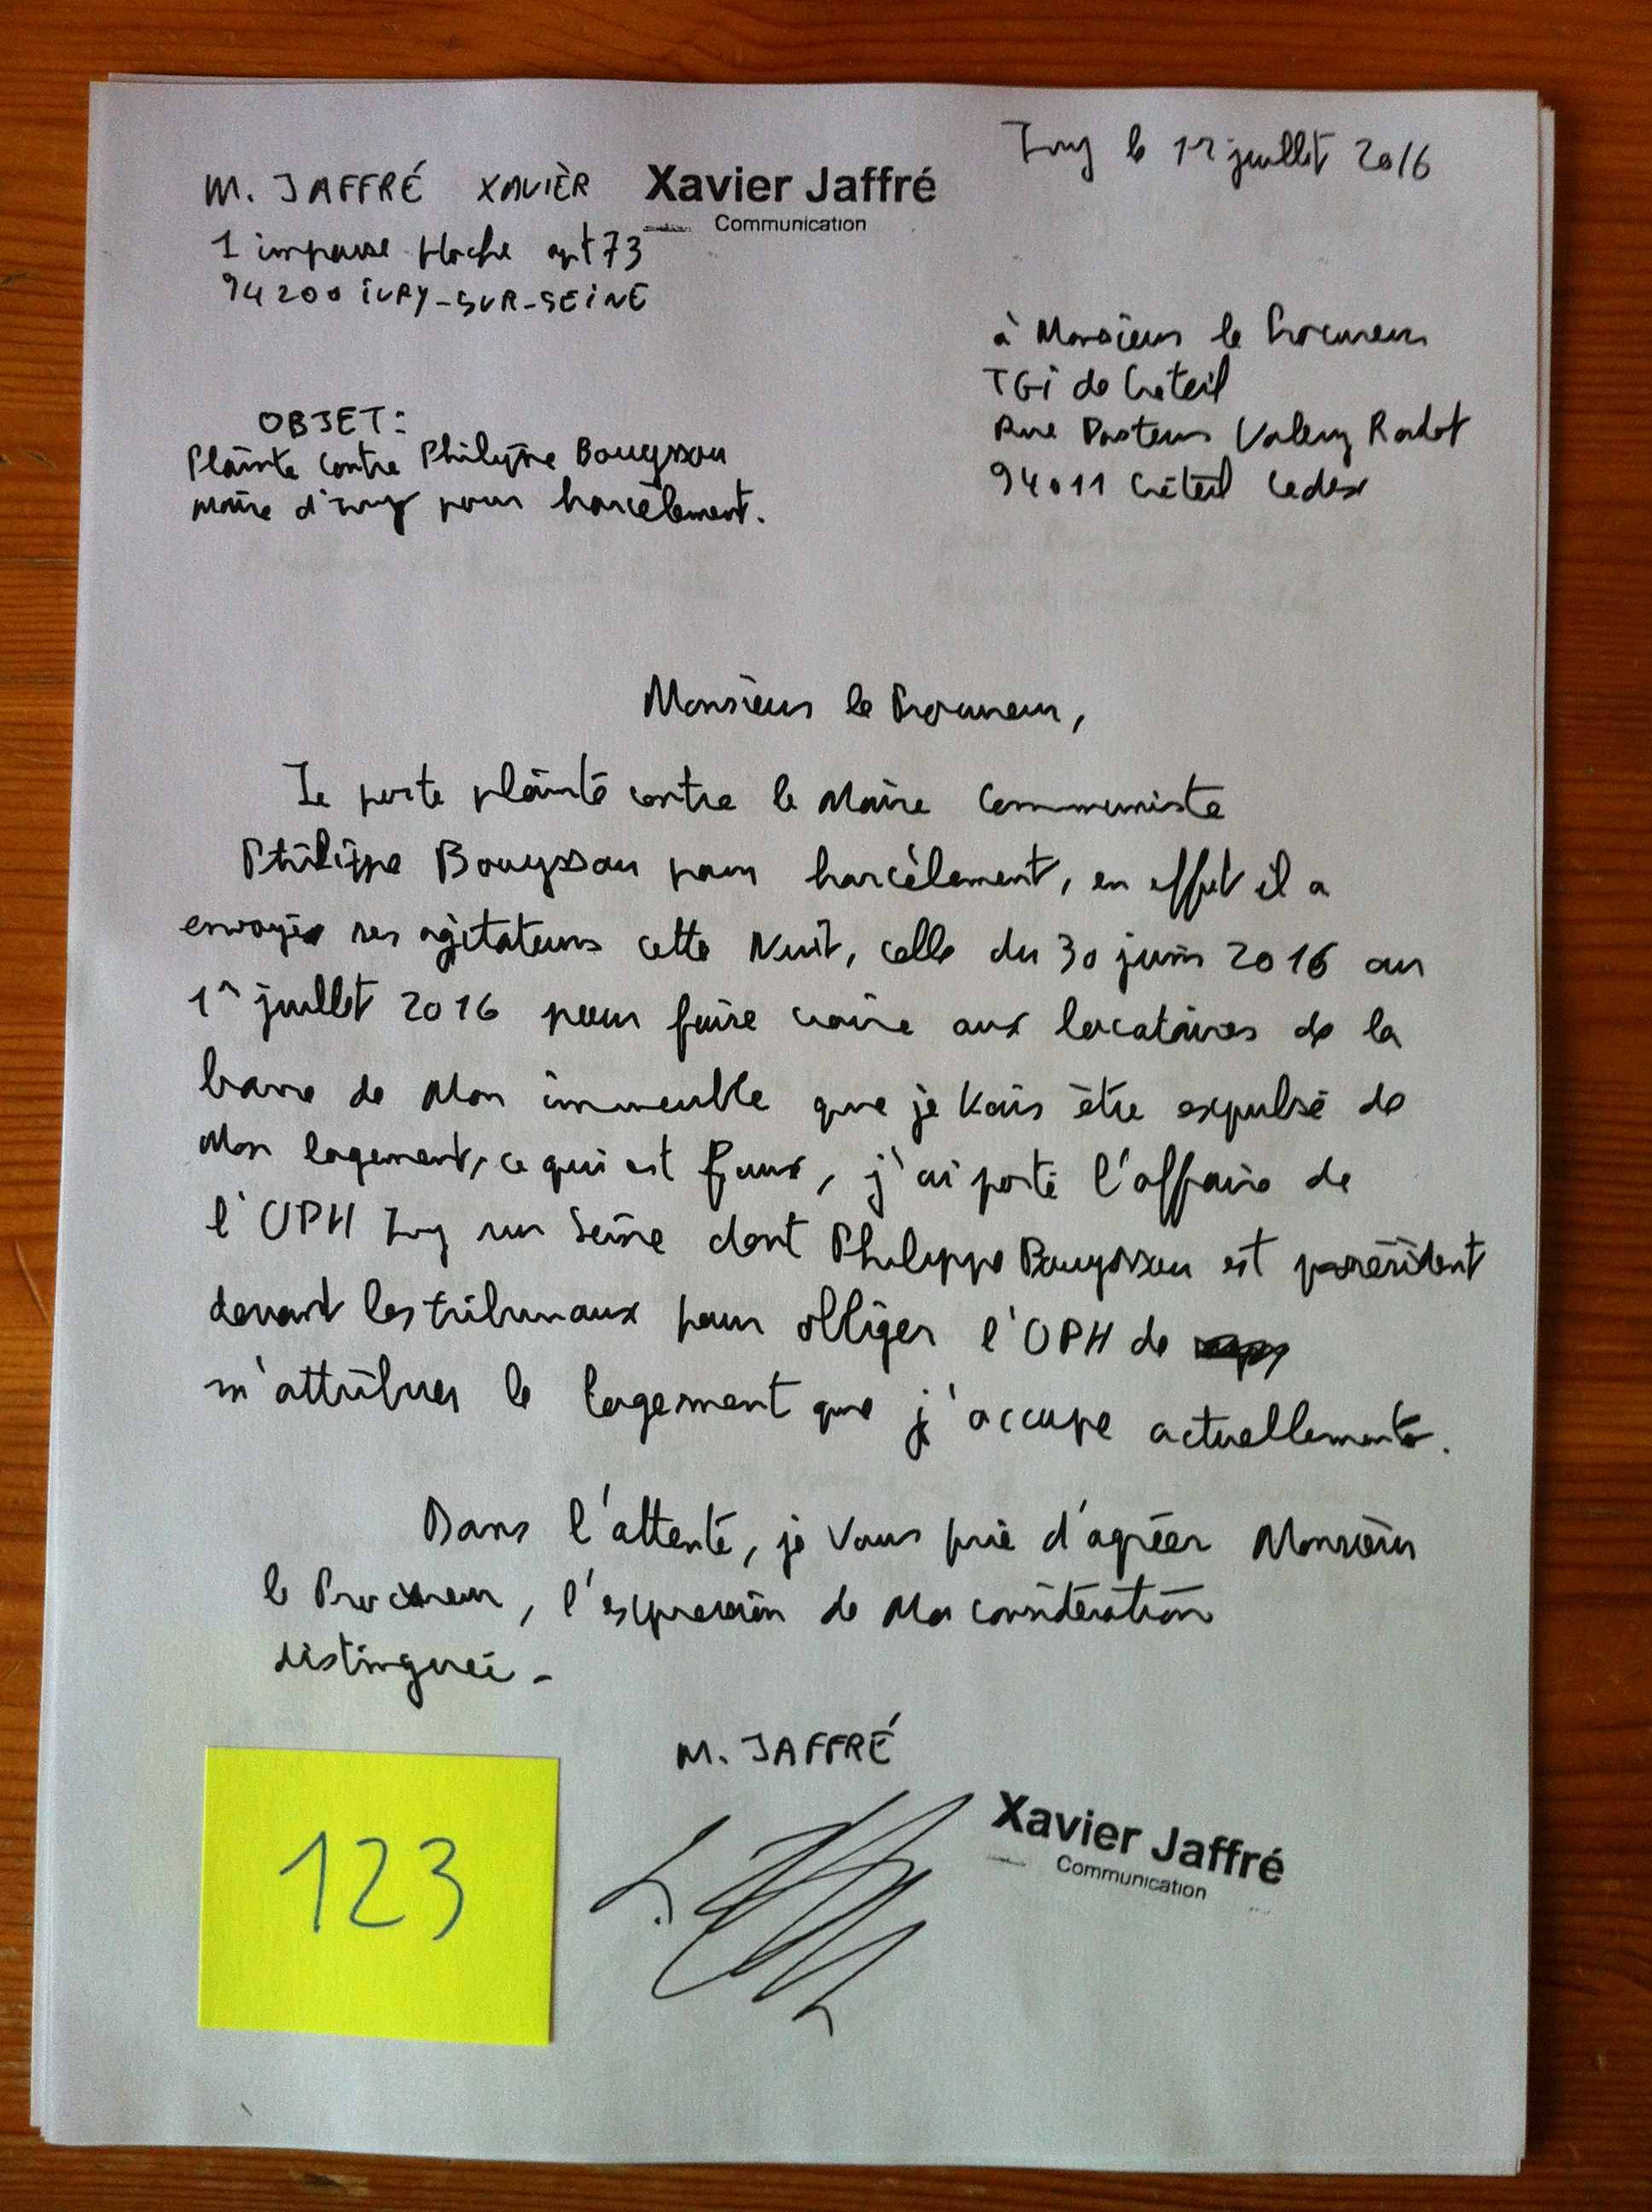 Ivry le 1er juillet 2016
M. JAFFRÉ XAVIER Xavier Jaffré
Communication
1 impasse Hoche apt 73
94200 IVRY-SUR-SEINE
à Monsieur le Procureur
TGI de Créteil
Rue Pasteur Valery Radot
94011 Créteil Cedex
OBJET:
Plainte contre Philippe Bouyssou
Maire d'Ivry pour harcèlement.
Monsieur le Procureur,
Je porte plainte contre le Maire Communiste
Philippe Bouyssou pour harcèlement, en effet il a
envoyé ses agitateurs cette Nuit, celle du 30 juin 2016 au
1er juillet 2016 pour faire croire aux locataires de la
barre de Mon immeuble que je vais être expulsé de
Mon logement, ce qui est faux, j'ai porté l'affaire de
l'OPH Ivry sur Seine dont Philippe Bouyssou est président
devant les tribunaux pour obliger l'OPH de
m'attribuer le logement que j'occupe actuellement.
Dans l'attente, je vous prie d'agréer Monsieur
le Procureur, l'expression de Ma considération
distinguée -
M. JAFFRÉ
Xavier Jaffré
Communication
123